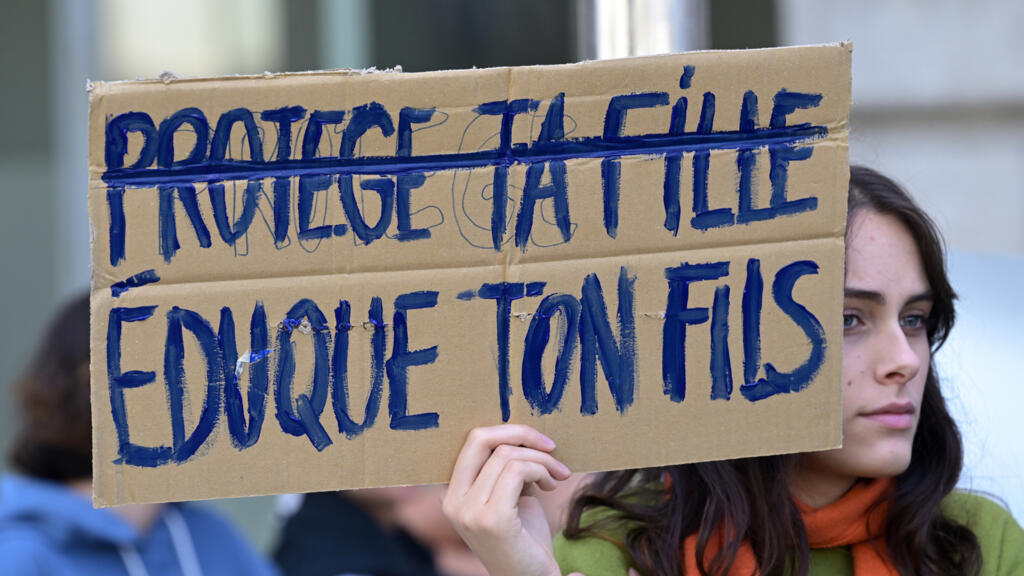 PROTEGE TA FILLE
ÉDUQUE TON FILS